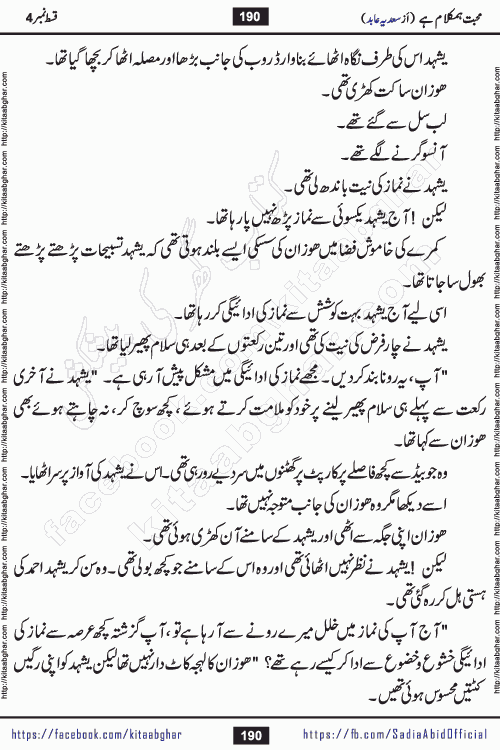 محبت ہمکلام ہے (از سعدیہ عابد)
190
قسط نمبر 4
یشہد اس کی طرف نگاہ اٹھائے بنا وارڈ روب کی جانب بڑھا اور مصلہ اٹھا کر بچھا گیا تھا۔
ھوزان ساکت کھڑی تھی۔
لب سل سے گئے تھے۔
آنسو گرنے لگے تھے۔
یشہد نے نماز کی نیت باندھ لی تھی۔
لیکن! آج یشہد یکسوئی سے نماز پڑھ نہیں پا رہا تھا۔
کمرے کی خاموش فضا میں ھوزان کی سسکی ایسے بلند ہوتی تھی کہ یشہد تسبیحات پڑھتے پڑھتے
بھول سا جاتا تھا۔
اسی لیے آج یشہد بہت کوشش سے نماز کی ادائیگی کر رہا تھا۔
یشہد نے چار فرض کی نیت کی تھی اور تین رکعتوں کے بعد ہی سلام پھیر لیا تھا۔
"آپ، یہ رونا بند کر دیں۔ مجھے نماز کی ادائیگی میں مشکل پیش آ رہی ہے۔ "یشہد نے آخری
رکعت سے پہلے ہی سلام پھیر لینے پر خود کو ملامت کرتے ہوئے، کچھ سوچ کر، نہ چاہتے ہوئے بھی
ھوزان سے کہا تھا۔
وہ جو بیڈ سے کچھ فاصلے پر کارپٹ پر گھٹنوں میں سر دیے رو رہی تھی۔ اس نے یشہد کی آواز پر سر اٹھایا۔
اسے دیکھا مگر وہ ھوزان کی جانب متوجہ نہیں تھا۔
ھوزان اپنی جگہ سے اٹھی اور یشہد کے سامنے آن کھڑی ہوئی تھی۔
لیکن! یشہد نے نظر نہیں اٹھائی تھی اور وہ اس کے سامنے جو کچھ بولی تھی۔ وہ سن کر یشہد احمد کی
ہستی ہل کر رہ گئی تھی۔
"آج آپ کی نماز میں خلل میرے رونے سے آ رہا ہے تو، آپ گزشتہ کچھ عرصہ سے نماز کی
ادائیگی خشوع و خضوع سے ادا کر کیسے رہے تھے؟ "ھوزان کا لہجہ کاٹ دار نہیں تھا لیکن یشہد کو اپنی رگیں
کٹتیں محسوس ہوئی تھیں۔
https://facebook.com/kitaabghar
190
https://fb.com/SadiaAbidOfficial
http://kitaabghar.com http://kitaabghar.com http://kitaabghar.com http://kitaabghar.com http://kitaabghar.com
http://kitaabghar.com http://kitaabghar.com http://kitaabghar.com http://kitaabghar.com http://kitaabghar.com